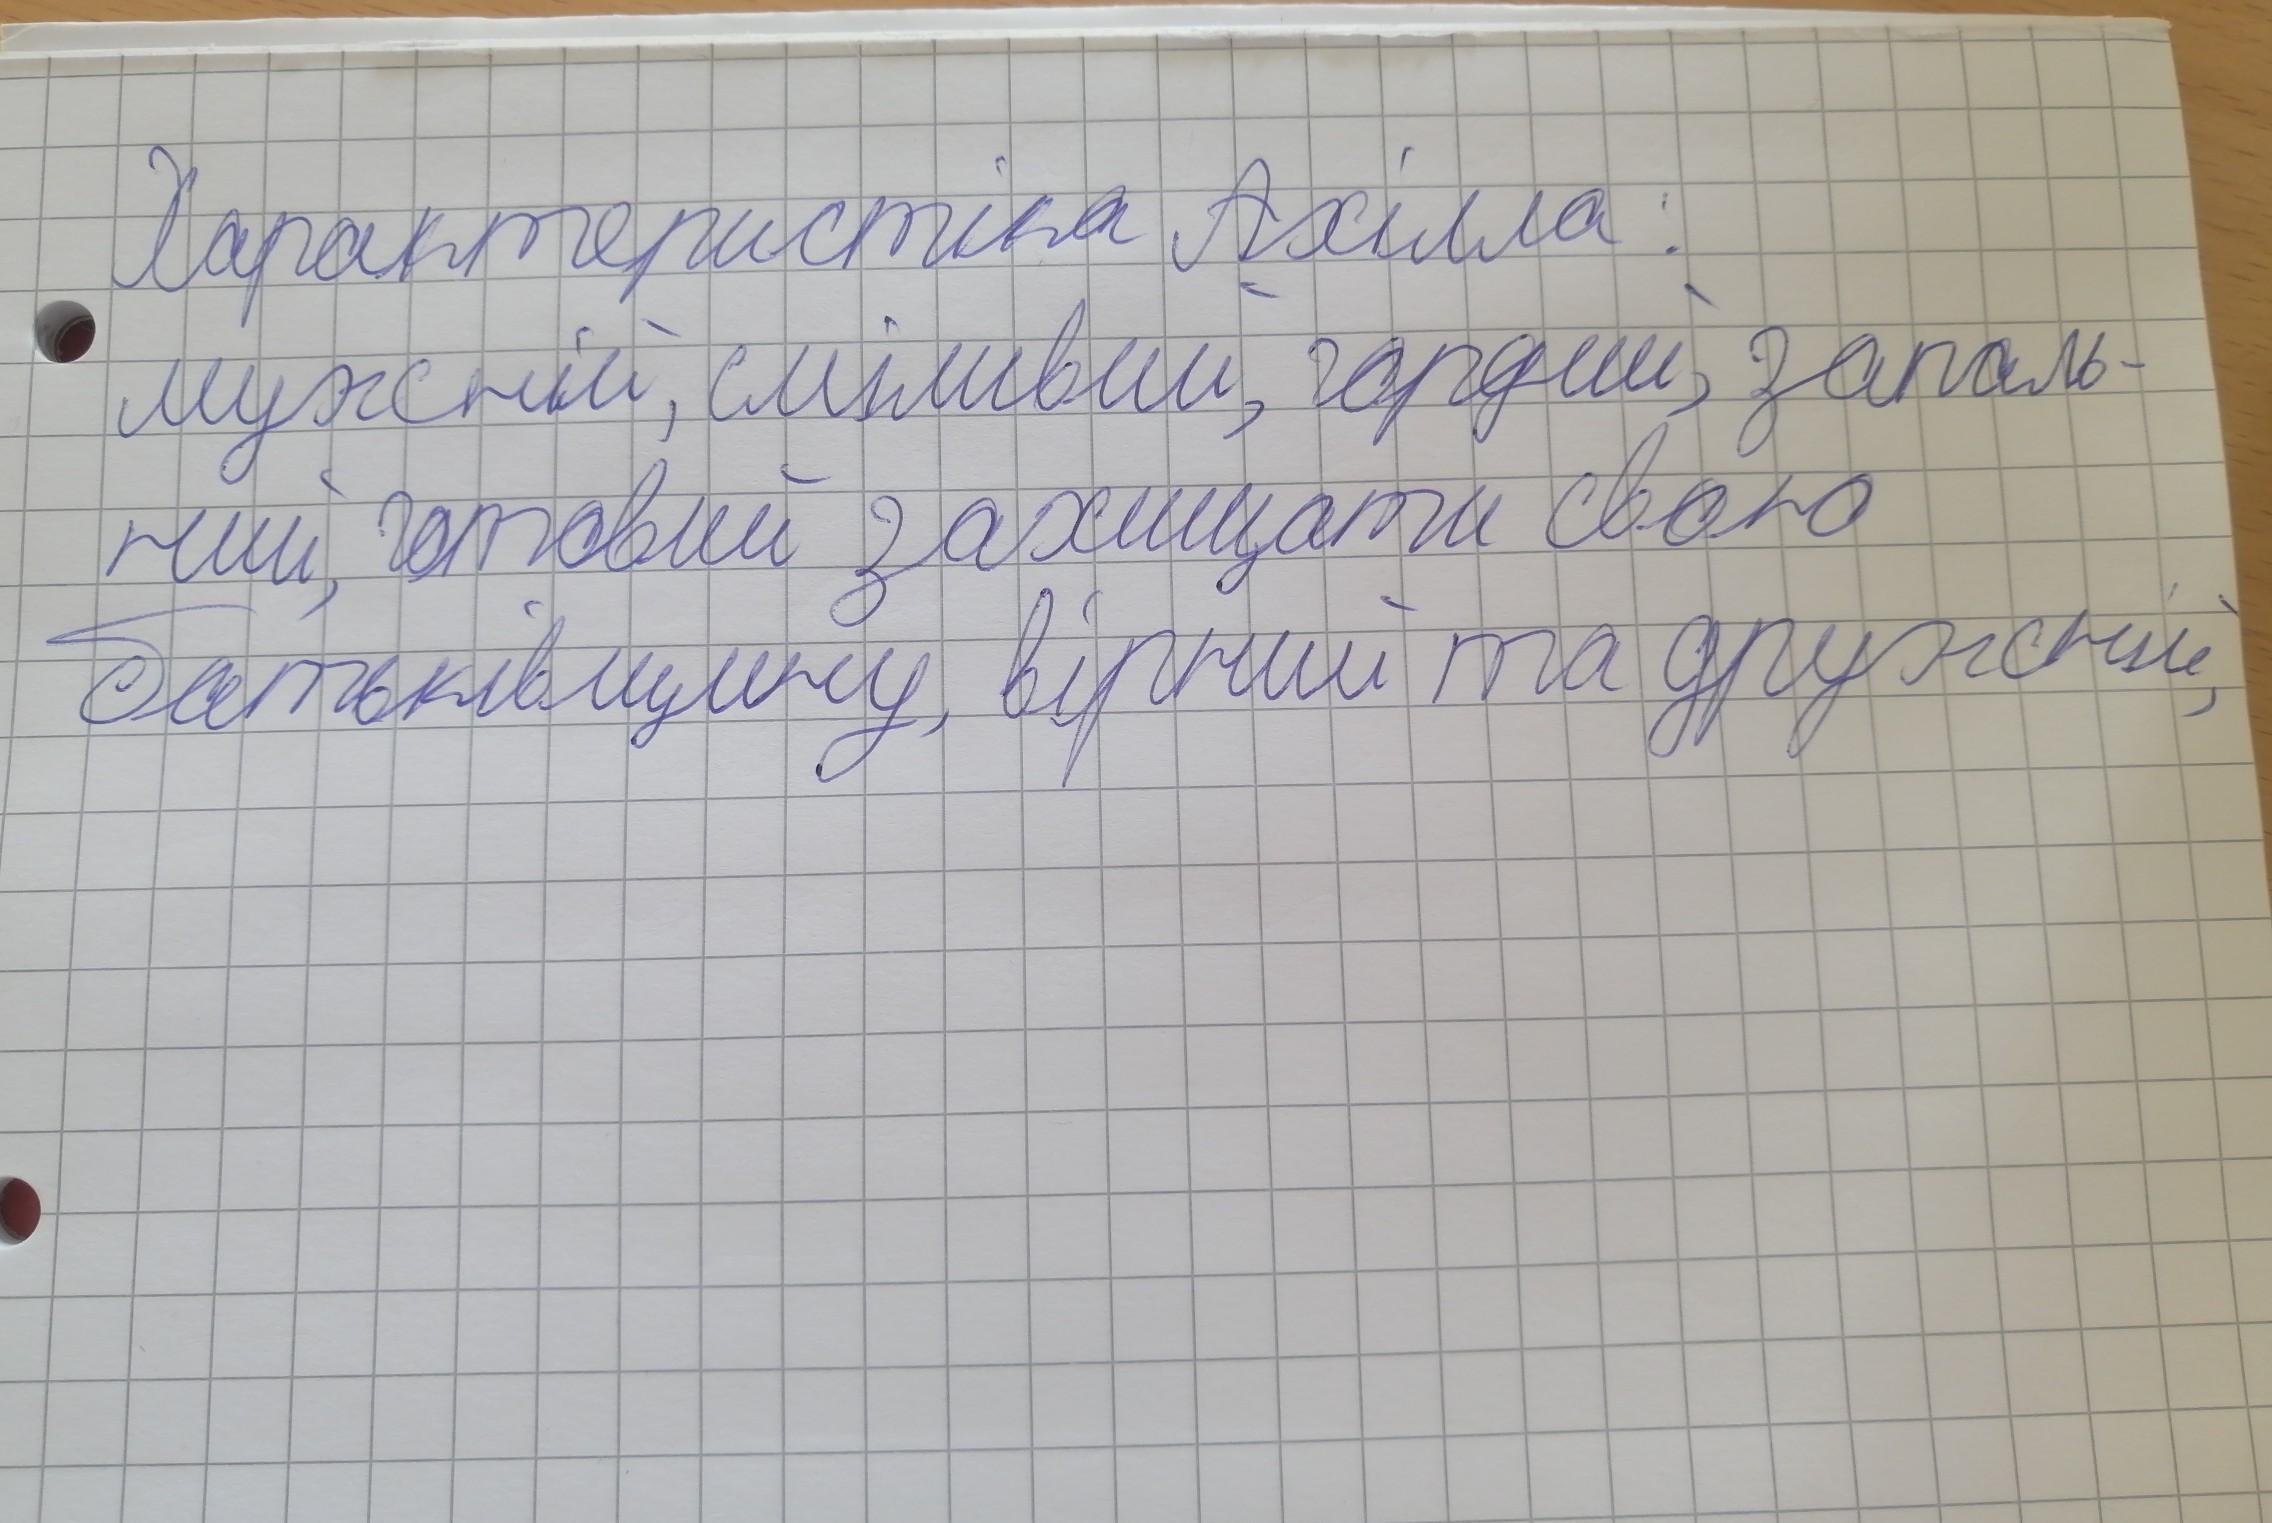 Характеристіка Ахілла:
мужній, смімивий, гордий, запаль-
ний, готовий захищати свою
батьківщину, вірний та дружній,